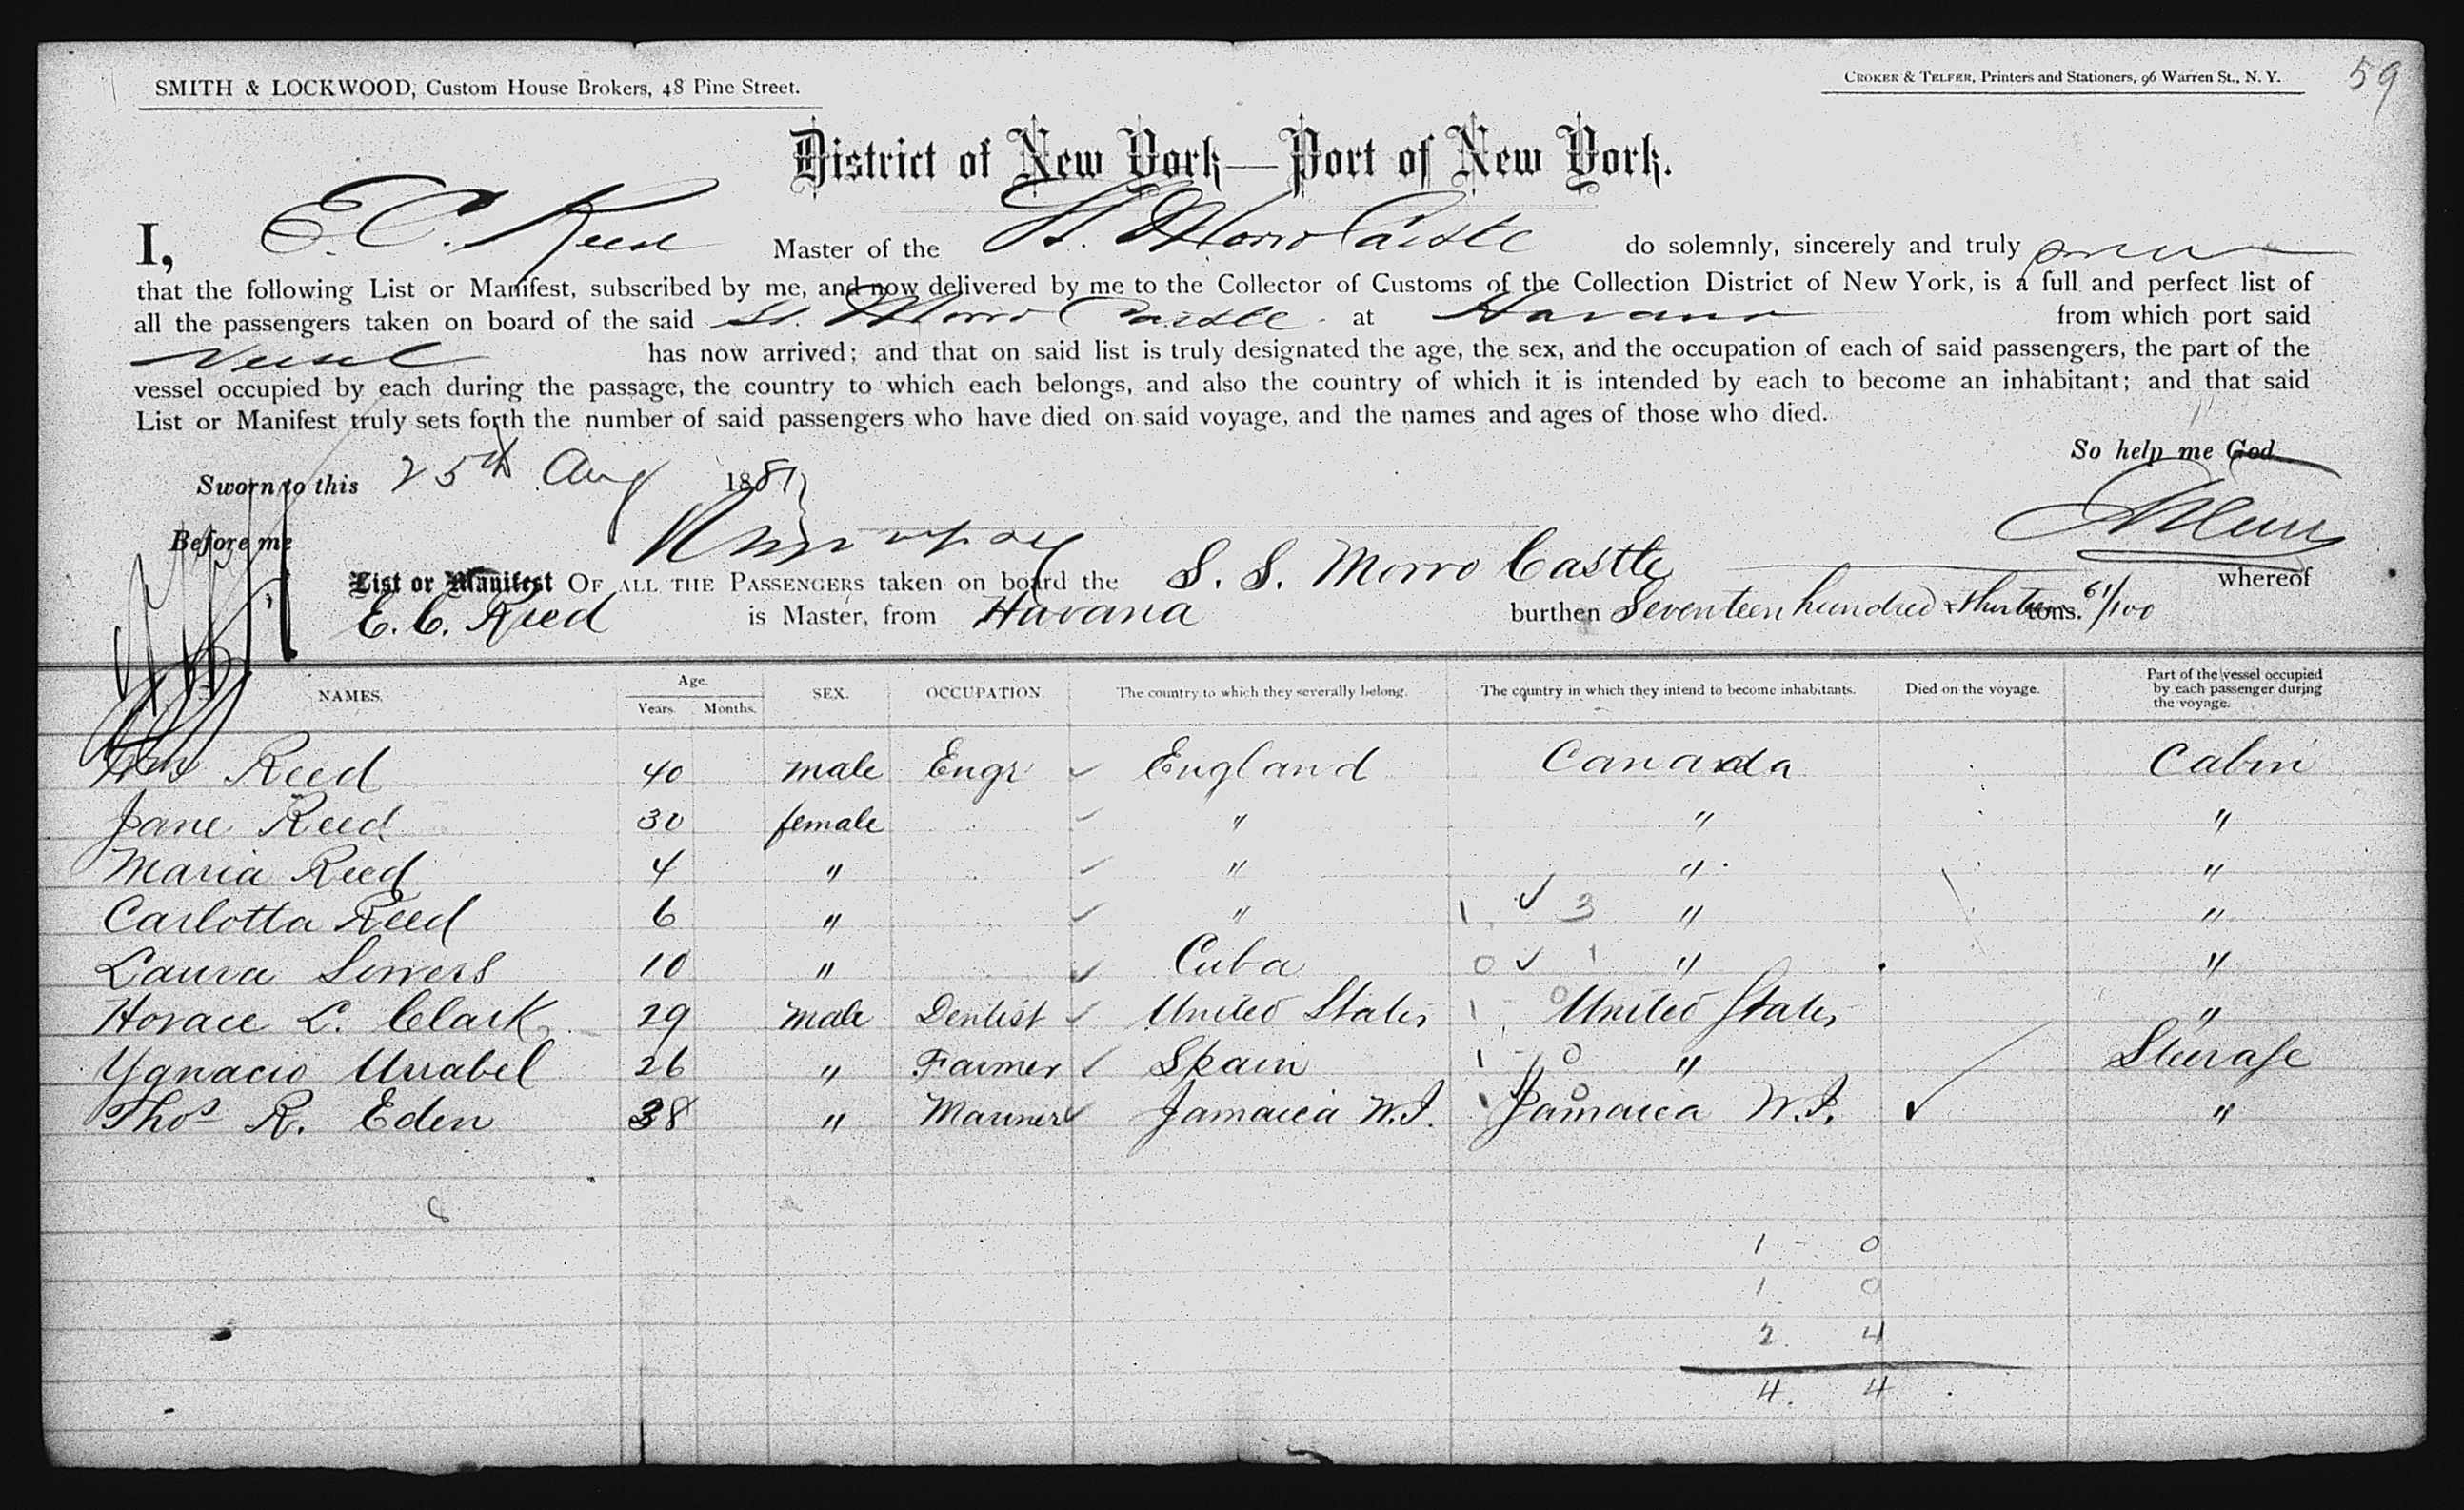 SMITH & LOCKWOOD, Custom House Brokers, 48 Pine Street.
CROKER & TELFER, Printers and Stationers, 96 Warren St., N. Y.
59
District of New York—Port of New York.
I, E. C. Reed Master of the St. Morro Castle do solemnly, sincerely and truly
that the following List or Manifest, subscribed by me, and now delivered by me to the Collector of Customs of the Collection District of New York, is a full and perfect list of
all the passengers taken on board of the said St. Morro Castle at Havana from which port said
Vessel has now arrived; and that on said list is truly designated the age, the sex, and the occupation of each of said passengers, the part of the
vessel occupied by each during the passage, the country to which each belongs, and also the country of which it is intended by each to become an inhabitant; and that said
List or Manifest truly sets forth the number of said passengers who have died on said voyage, and the names and ages of those who died.
So help me God
Sworn to this 25th Aug 1887
Before me
List or Manifest OF ALL THE PASSENGERS taken on board the S. S. Morro Castle whereof
E. C. Reed is Master, from Havana burthen Seventeen hundred & thirteen tons. 61/100
NAMES. Age. Years. Months. SEX. OCCUPATION. The country to which they severally belong. The country in which they intend to become inhabitants. Died on the voyage. Part of the vessel occupied by each passenger during the voyage.
Reed 40 male Engr England Canada Cabin
Jane Reed 30 female " " "
Maria Reed 4 " " " "
Carlotta Reed 6 " " 1 3 " "
Laura 10 " Cuba 0 1 " "
Horace L. Clark 29 male Dentist United States 1 0 United States "
Ygnacio 26 " Farmer Spain 1 0 " Steerage
Thos R. Eden 38 " Mariner Jamaica W.I. 1 0 Jamaica W.I. "
8
1 0
1 0
2 4
4 4